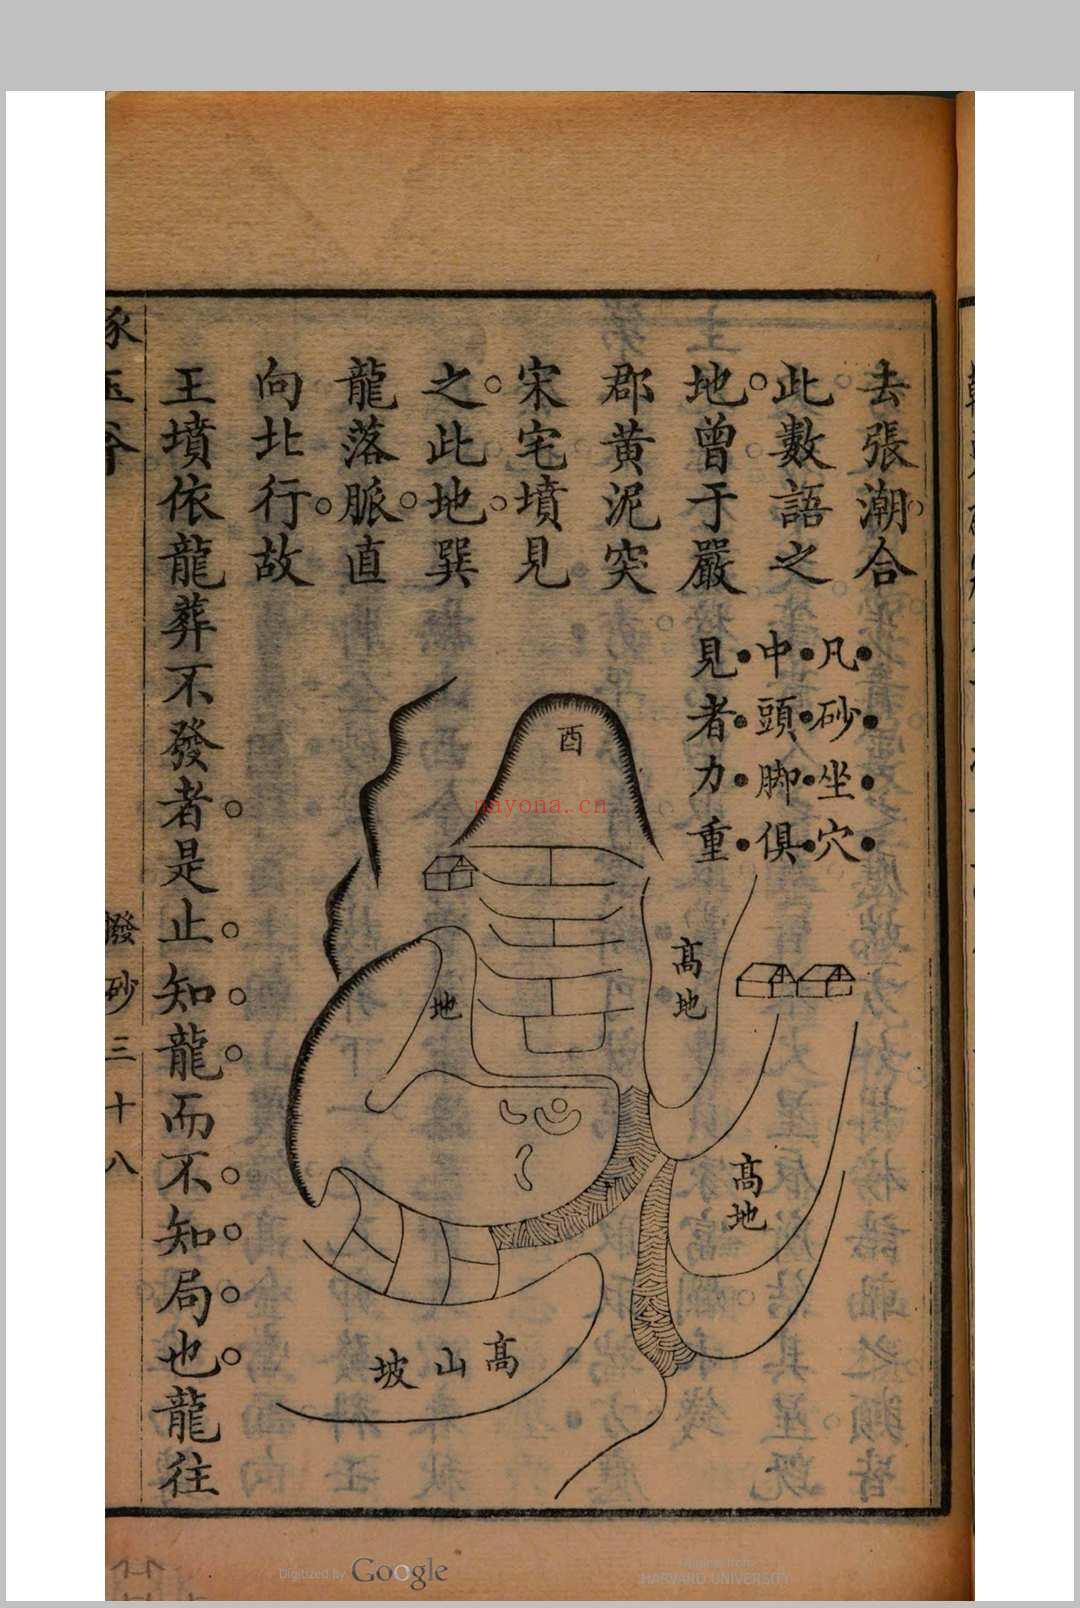 去張潮合
此數語之
地曾于嚴
郡黄泥突
宋宅墳見
之此地巽
龍落脈直
向北行故
王墳依龍葬不發者是止知龍而不知局也龍往
凡砂坐穴
中頭脚俱
見者力重
酉
高地
地
高地
高山坡
撥砂三十八
nayona.cn
Digitized by Google
Original from
HARVARD UNIVERSITY